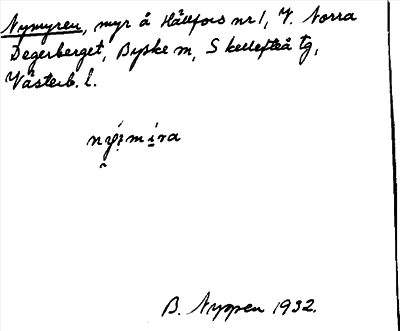 Nymyren, myr å Hällfors nr 1, V. Norra
Degerberget, Byske sn, Skellefteå tg,
Västerb. l.
B. Nyppen 1932.